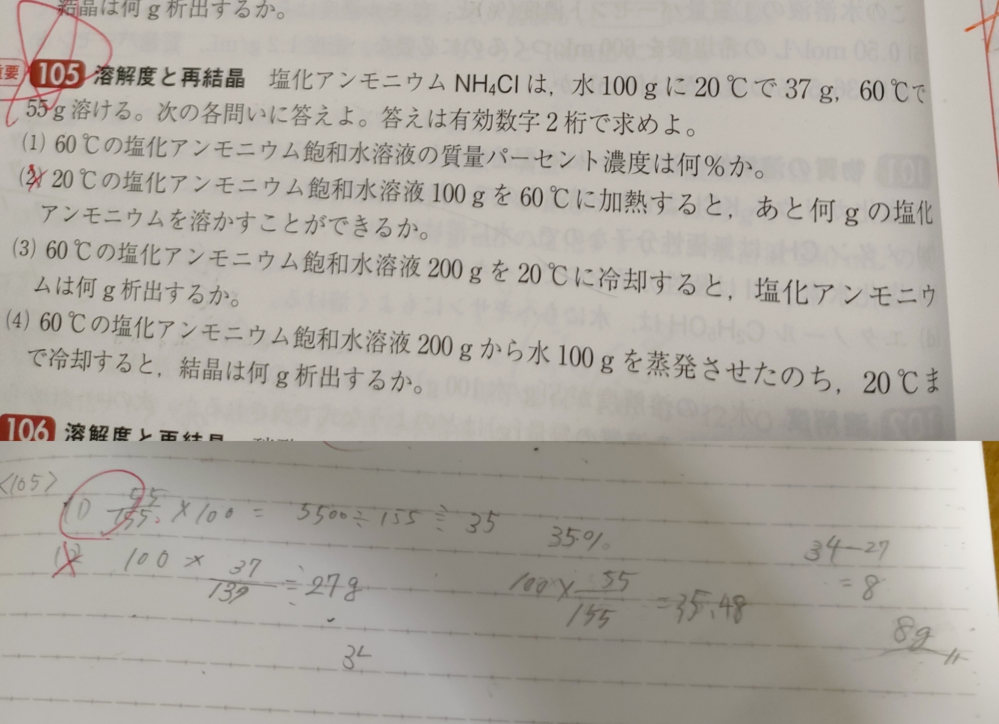 結晶は何g析出するか。
要 105 溶解度と再結晶 塩化アンモニウム NH₄Cl は，水 100 g に 20 ℃で 37 g，60 ℃で
55 g 溶ける。次の各問いに答えよ。答えは有効数字 2 桁で求めよ。
(1) 60 ℃の塩化アンモニウム飽和水溶液の質量パーセント濃度は何％か。
(2) 20 ℃の塩化アンモニウム飽和水溶液 100 g を 60 ℃に加熱すると，あと何 g の塩化
アンモニウムを溶かすことができるか。
(3) 60 ℃の塩化アンモニウム飽和水溶液 200 g を 20 ℃に冷却すると，塩化アンモニウ
ムは何 g 析出するか。
(4) 60 ℃の塩化アンモニウム飽和水溶液 200 g から水 100 g を蒸発させたのち，20 ℃ま
で冷却すると，結晶は何 g 析出するか。
106 溶解度と再結晶
<105>
(1) 55/155 × 100 = 5500 ÷ 155 ≒ 35 35%
(2) 100 × 37/139 ≒ 27g 100 × 55/155 = 35.48 34-27
= 8
8g